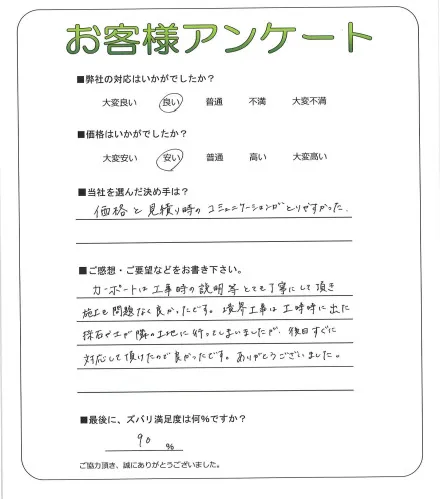 お客様アンケート
■弊社の対応はいかがでしたか?
大変良い 良い 普通 不満 大変不満
■価格はいかがでしたか?
大変安い 安い 普通 高い 大変高い
■当社を選んだ決め手は?
価格と見積り時のコミュニケーションがとりやすかった.
■ご感想・ご要望などをお書き下さい。
カーポートは工事時の説明等とても丁寧にして頂き
施工も問題なく良かったです。境界工事は工時時に出た
採石や土が隣の土地に行ってしまいましたが、後日すぐに
対応して頂けたので良かったです。ありがとうございました。
■最後に、ズバリ満足度は何%ですか?
90 %
ご協力頂き、誠にありがとうございました。